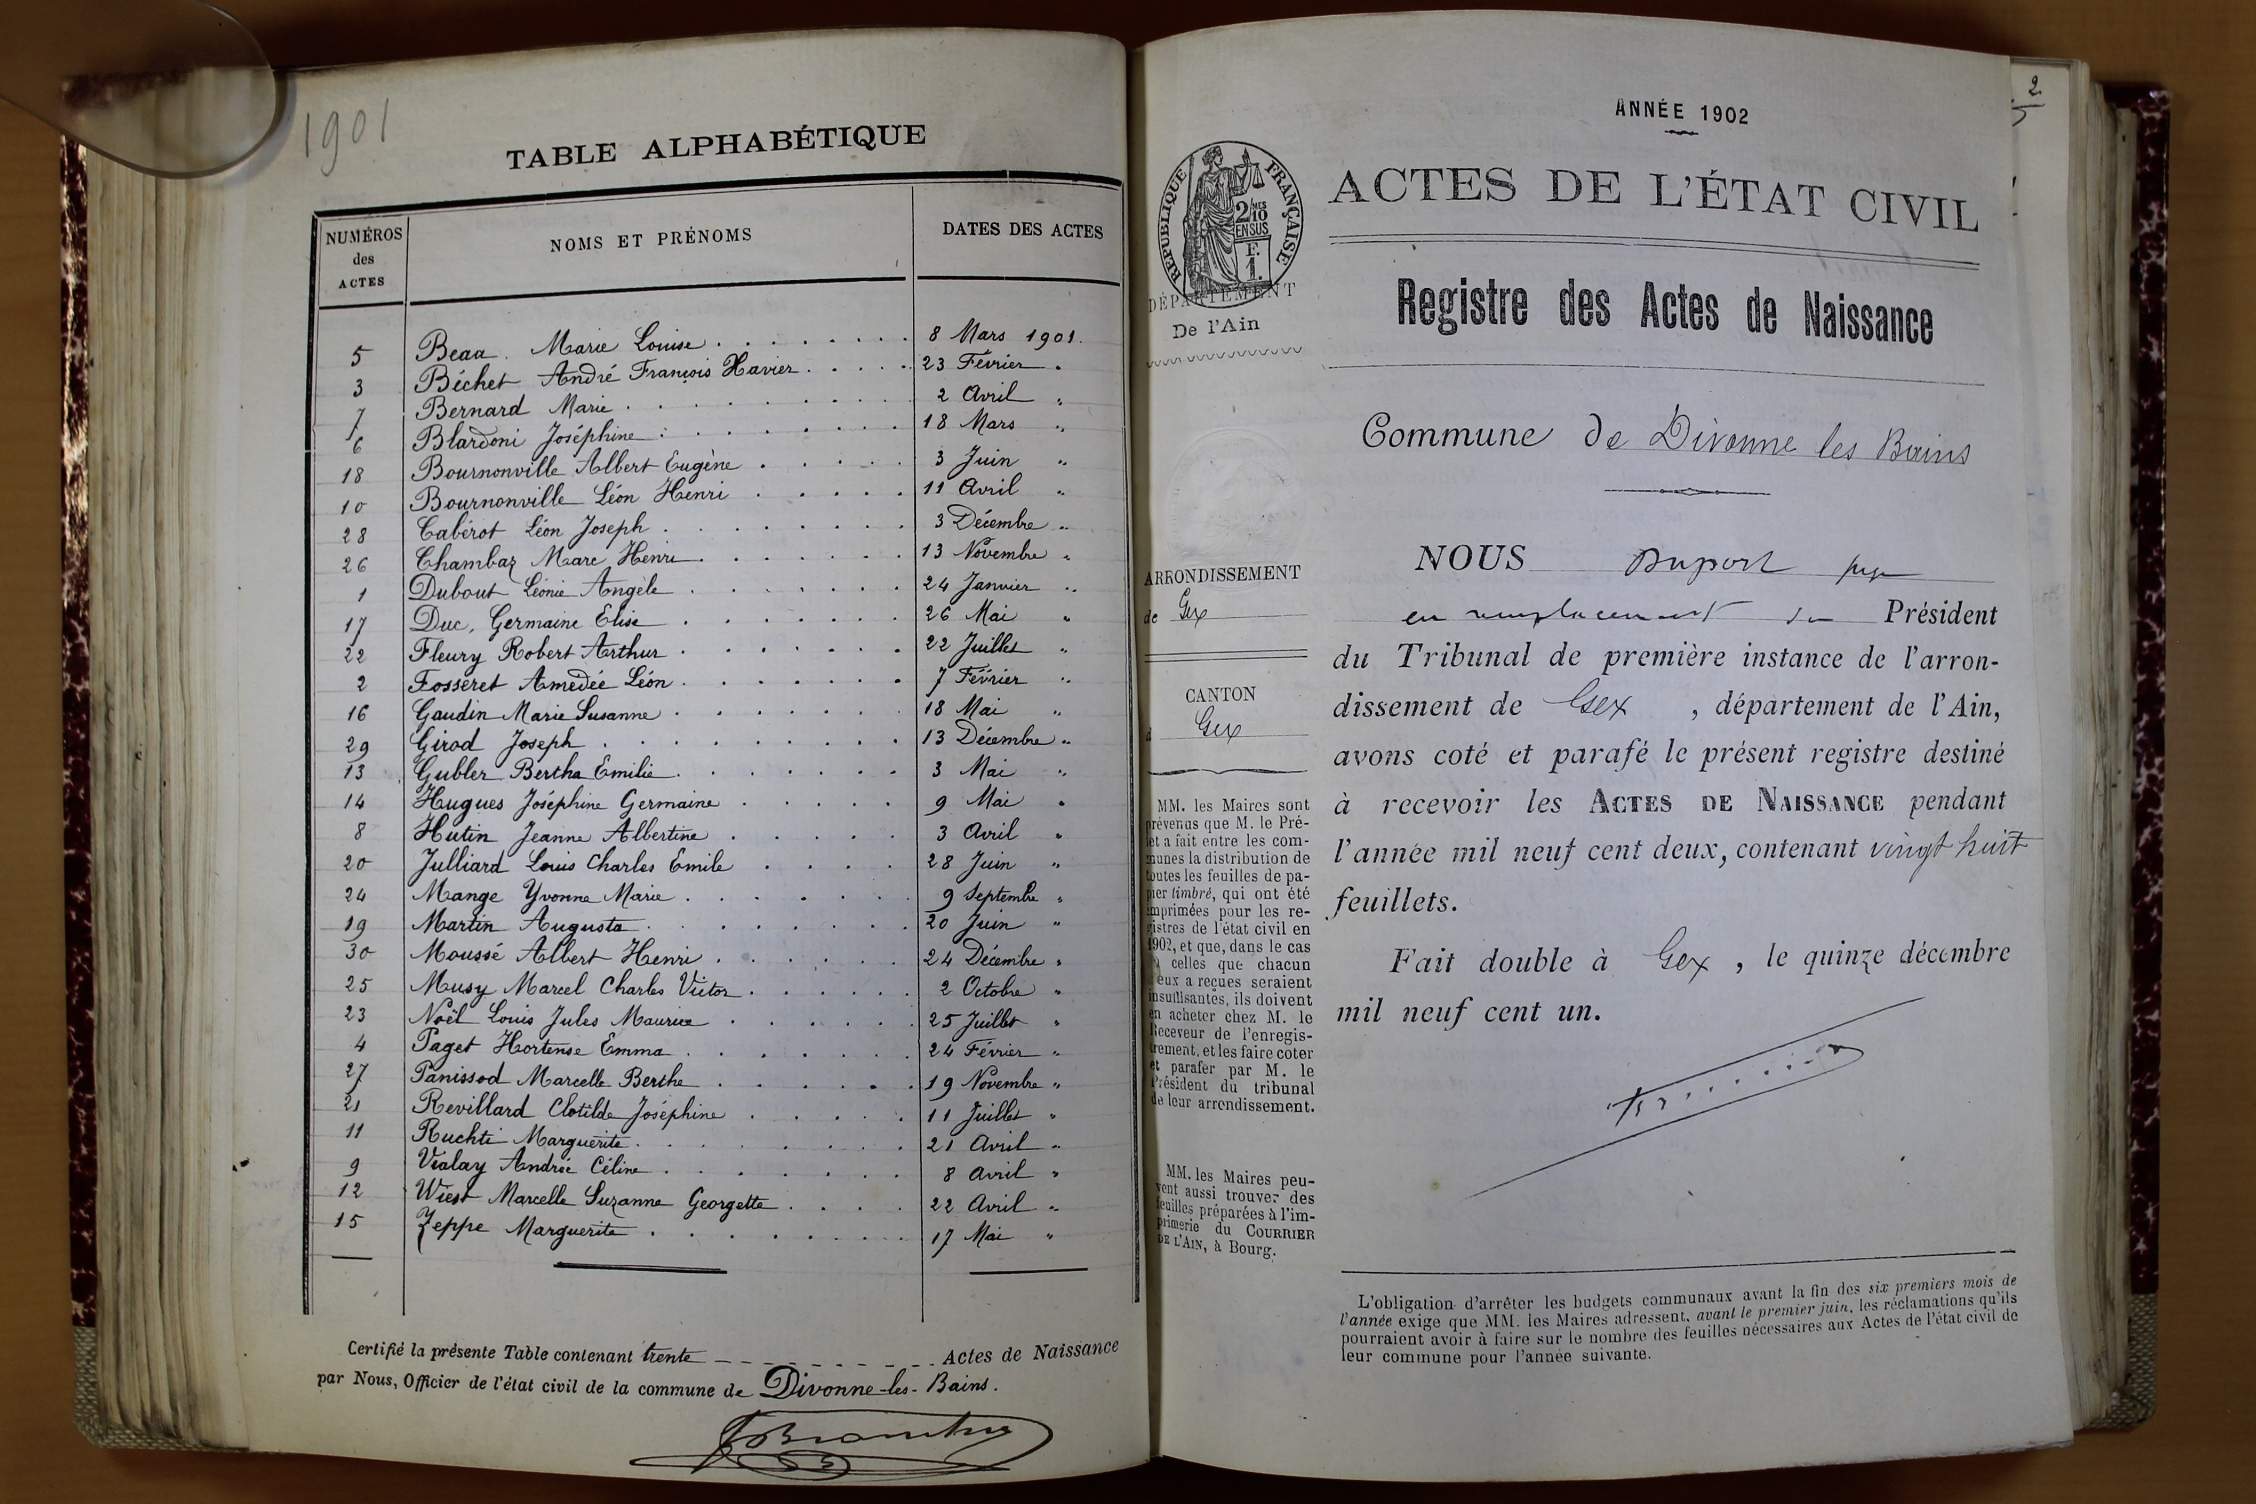 1901
TABLE ALPHABÉTIQUE
NUMÉROS
des
ACTES
NOMS ET PRÉNOMS
DATES DES ACTES
5 Beaa. Marie Louise . . . . . . . 8 Mars 1901.
3 Béchet André François Xavier . . . . . 23 Février "
7 Bernard Marie . . . . . . . . . 2 Avril "
6 Blardoni Joséphine . . . . . . . . 18 Mars "
18 Bournonville Albert Eugène . . . . . 3 Juin "
10 Bournonville Léon Henri . . . . . 11 Avril "
28 Cabérot Léon Joseph . . . . . . . . 3 Décembre "
26 Chambaz Marc Henri . . . . . . . 13 Novembre "
1 Dubout Léonie Angèle . . . . . . . 24 Janvier "
17 Duc, Germaine Elise . . . . . . . 26 Mai "
22 Fleury Robert Arthur . . . . . . . 22 Juillet "
2 Fosseret Amédée Léon . . . . . . . 7 Février "
16 Gaudin Marie Susanne . . . . . . . 18 Mai "
29 Girod Joseph . . . . . . . . . 13 Décembre "
13 Gubler Bertha Emilie . . . . . . . 3 Mai "
14 Hugues Joséphine Germaine . . . . . 9 Mai "
8 Hutin Jeanne Albertine . . . . . 3 Avril "
20 Julliard Louis Charles Emile . . . . 28 Juin "
24 Mange Yvonne Marie . . . . . . . 9 Septembre "
19 Martin Augusta . . . . . . . . 20 Juin "
30 Moussé Albert Henri . . . . . . 24 Décembre "
25 Musy Marcel Charles Victor . . . . . . 2 Octobre "
23 Noël Louis Jules Maurice . . . . . . 25 Juillet "
4 Paget Hortense Emma . . . . . . . 24 Février "
27 Panissod Marcelle Berthe . . . . . . 19 Novembre "
21 Revillard Clotilde Joséphine . . . . . 11 Juillet "
11 Ruchti Marguerite . . . . . . . . 21 Avril "
9 Vialay Andrée Céline . . . . . . . 8 Avril "
12 Wiest Marcelle Suzanne Georgette . . . . 22 Avril "
15 Zeppe Marguerite . . . . . . . . 17 Mai "
Certifié la présente Table contenant trente Actes de Naissance
par Nous, Officier de l'état civil de la commune de Divonne-les-Bains.
2
ANNÉE 1902
ACTES DE L'ÉTAT CIVIL
RÉPUBLIQUE FRANÇAISE
2/10MES
EN SUS
F.
1.
DÉPARTEMENT
De l'Ain
Registre des Actes de Naissance
Commune de Divonne les Bains
ARRONDISSEMENT
de Gex
CANTON
d Gex
MM. les Maires sont
prévenus que M. le Pré-
fet a fait entre les com-
munes la distribution de
toutes les feuilles de pa-
pier timbré, qui ont été
imprimées pour les re-
gistres de l'état civil en
1902, et que, dans le cas
où celles que chacun
d'eux a reçues seraient
insuffisantes, ils doivent
en acheter chez M. le
Receveur de l'enregis-
trement, et les faire coter
et parafer par M. le
Président du tribunal
de leur arrondissement.
MM. les Maires peu-
vent aussi trouver des
feuilles préparées à l'im-
primerie du COURRIER
DE L'AIN, à Bourg.
NOUS Duport juge
en remplacement du Président
du Tribunal de première instance de l'arron-
dissement de Gex , département de l'Ain,
avons coté et parafé le présent registre destiné
à recevoir les ACTES DE NAISSANCE pendant
l'année mil neuf cent deux, contenant vingt huit
feuillets.
Fait double à Gex , le quinze décembre
mil neuf cent un.
L'obligation d'arrêter les budgets communaux avant la fin des six premiers mois de
l'année exige que MM. les Maires adressent, avant le premier juin, les réclamations qu'ils
pourraient avoir à faire sur le nombre des feuilles nécessaires aux Actes de l'état civil de
leur commune pour l'année suivante.